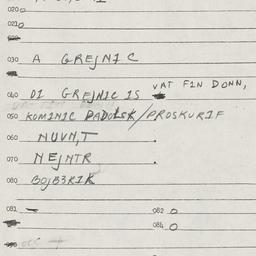 020
021
030 A GREJNIC
VRT FIN DONN,
040 DI GREJNIC IS
050 KOMINIC PADOLSK/PROSKURIF
060 NUVN,T
070 NEJNTR
080 BOJBERIK
081 082 0
084 0